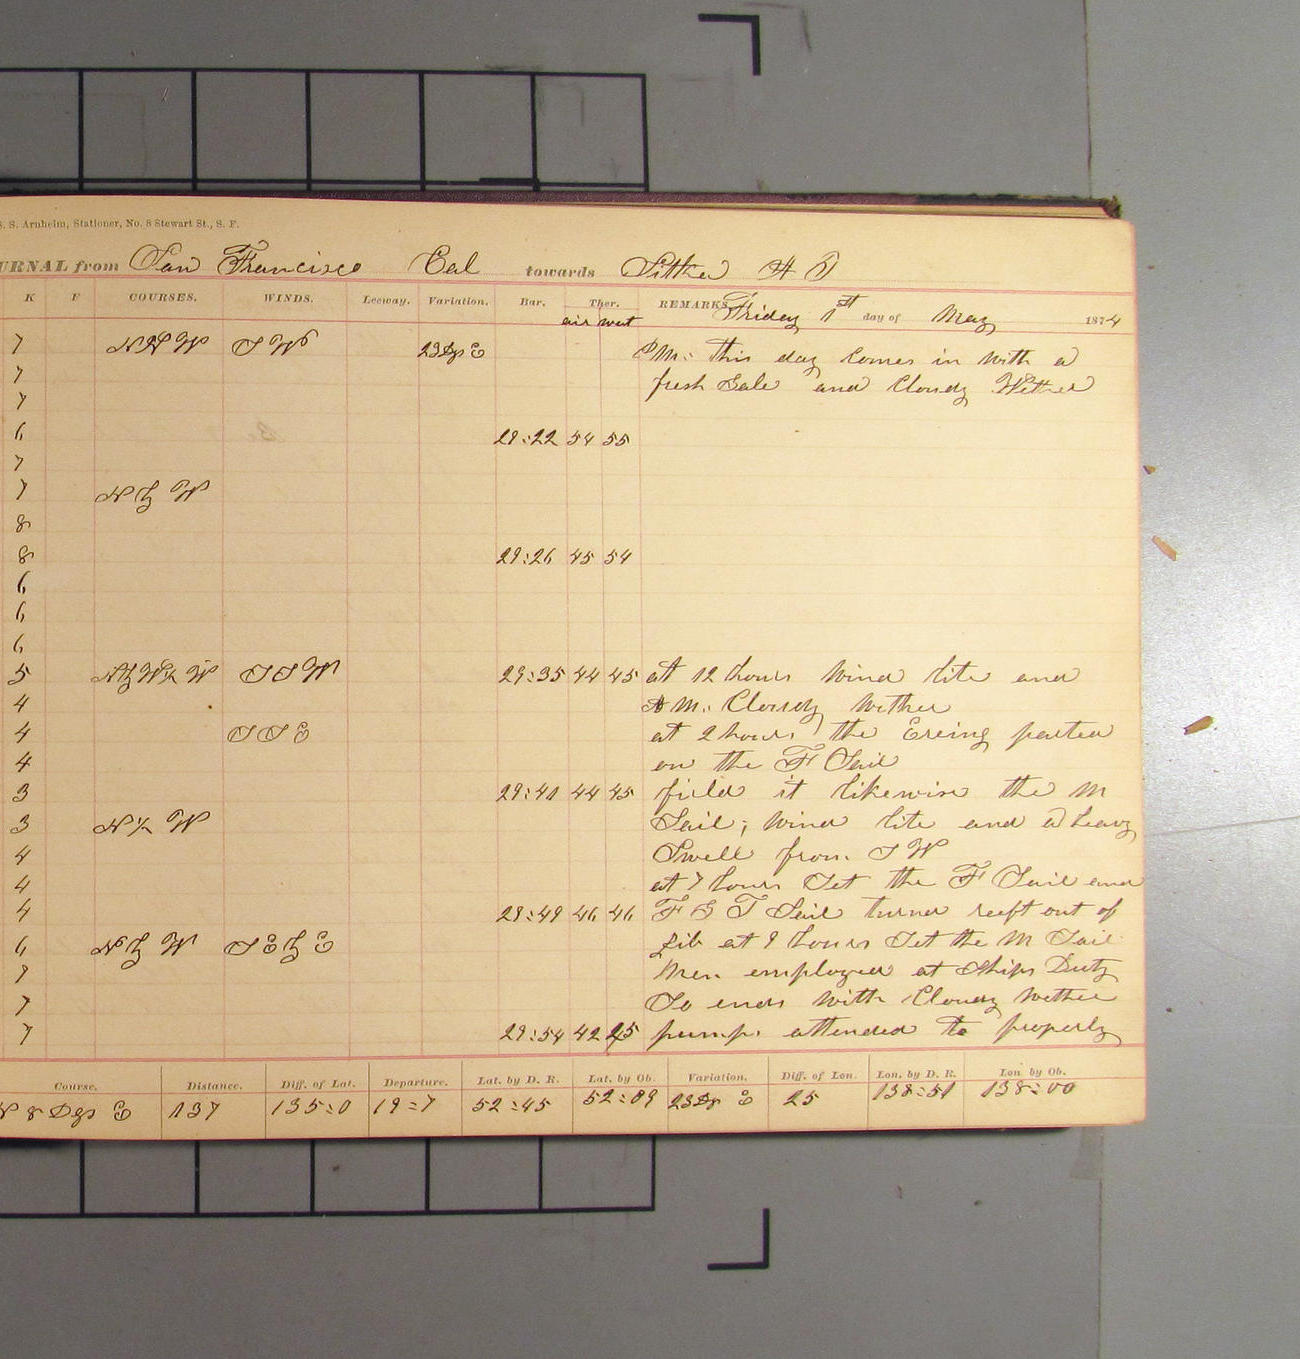 S. S. Arnheim, Stationer, No. 8 Stewart St., S. F.
URNAL from San Francisco Cal towards Sitka A T
K F COURSES. WINDS. Leeway. Variation. Bar. Ther. REMARKS, Friday 1st day of May 1874
air wat
7 N N W S W 23 Dgs E P M: This day Comes in with a
7 fresh Gale and Cloudy Wether
7
6 29:22 54 55
7
7 N b W
8
8 29:26 45 54
6
6
6
5 S S W 29:35 44 45 at 12 hours Wind lite and
4 A M: Cloudy Wether
4 S S E at 2 hours the parted
4 on the F Sail
3 29:41 44 45 it likewise the M
3 N ½ W Sail; Wind lite and a heavy
4 Swell from S W
4 at 7 hours Set the F Sail and
4 29:49 46 46 F G T Sail turned reeft out of
6 N b W S E b E Jib at 9 hours Set the M Sail
7 Men employed at Ships Duty
7 So ends with Cloudy wether
7 29:54 42 45 pumps attended to properly
Course. Distance. Diff. of Lat. Departure. Lat. by D. R. Lat. by Ob. Variation. Diff. of Lon. Lon. by D. R. Lon. by Ob.
N 8 Dgs E 137 135:0 19=7 52:45 52:09 23 Dgs E 25 138:51 138:00